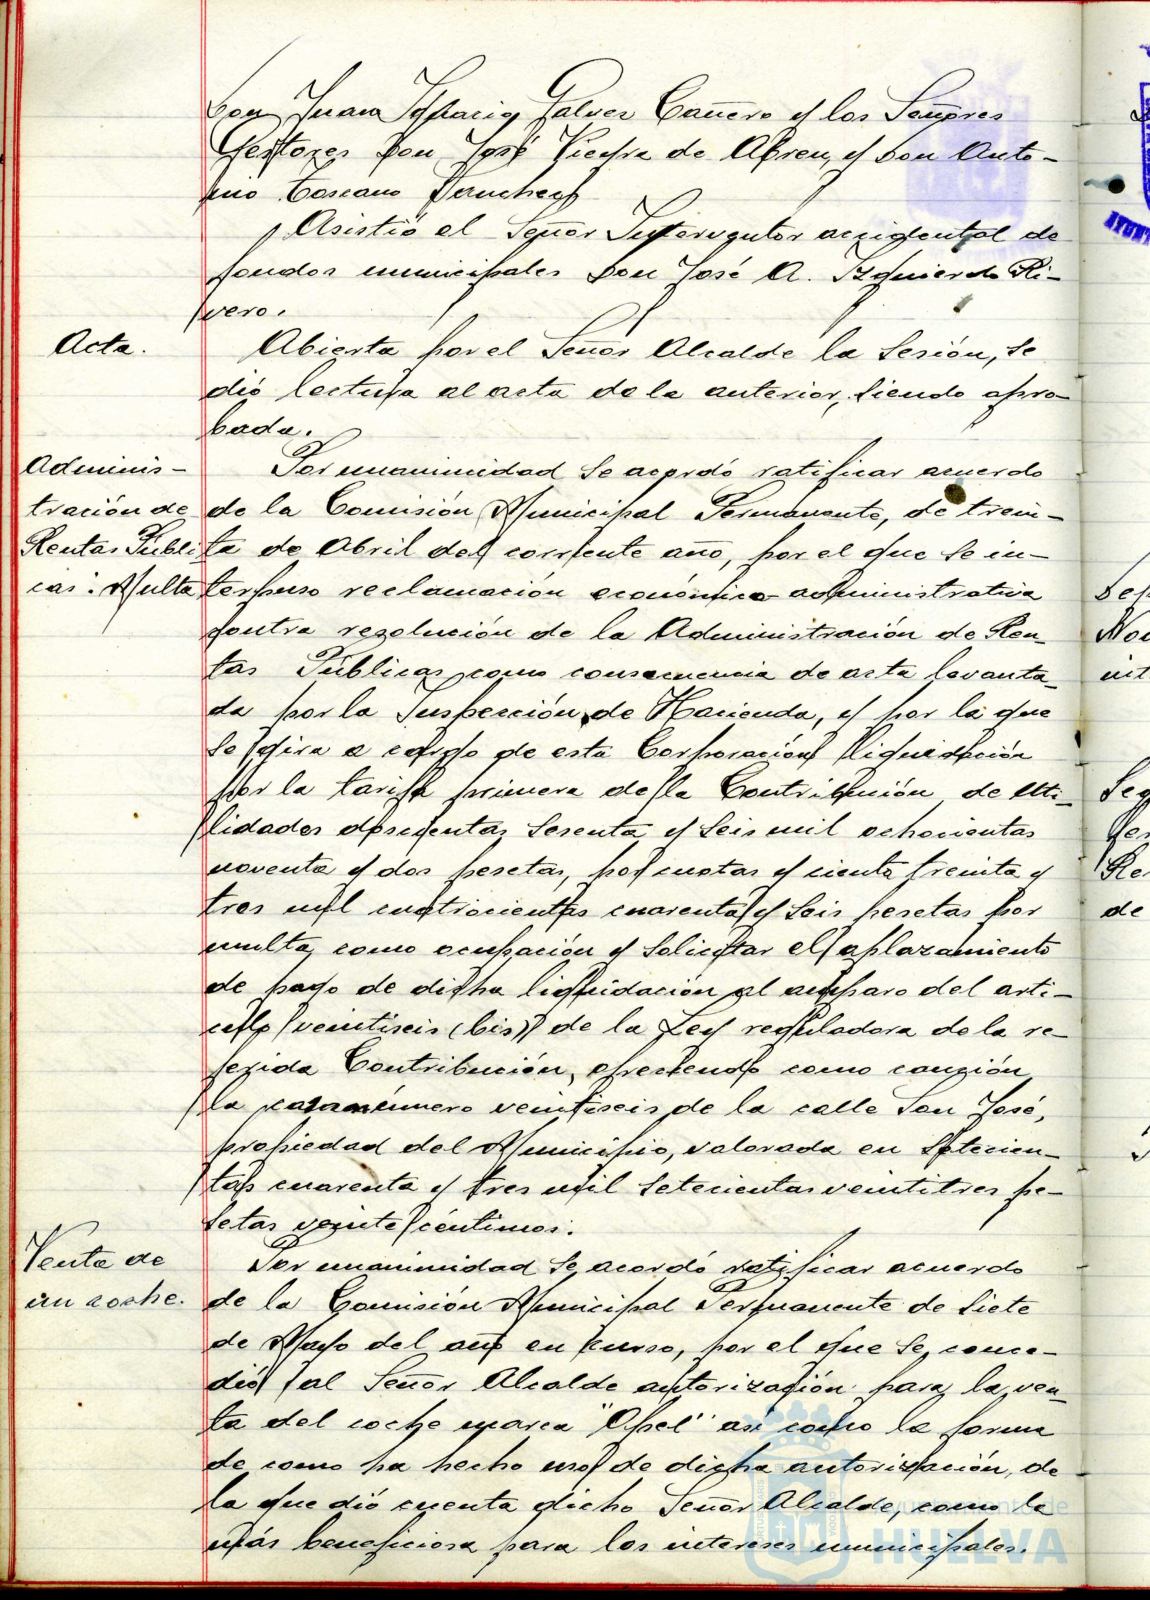 Don Juan Ignacio Galvez Cañero y los Señores
Gestores Don José Piedra de Abreu, y Don Anto-
nio Toscano Sanchez
Asistió el Señor Interventor accidental de
fondos municipales Don José A. Izquierdo Ri-
vero.
Acta.
Abierta por el Señor Alcalde la Sesión, se
dió lectura al acta de la anterior, siendo apro-
bada.
Adminis-
tración de
Rentas Públi
cas: Multa
Por unanimidad se acordó ratificar acuerdo
de la Comisión Municipal Permanente, de trein-
ta de Abril del corriente año, por el que se in-
terpuso reclamación económico administrativa
contra resolución de la Administración de Ren-
tas Públicas, como consecuencia de acta levanta-
da por la Inspección de Hacienda, y por la que
se gira a cargo de esta Corporación liquidación
por la tarifa primera de la Contribución de Uti-
lidades doscientas sesenta y seis mil ochocientas
noventa y dos pesetas, por cuotas y ciento treinta y
tres mil cuatrocientas cuarenta y seis pesetas por
multa, como ocupación y solicitar el aplazamiento
de pago de dicha liquidación al amparo del artí-
culo veintiseis (bis) de la Ley reguladora de la re-
ferida Contribución, ofreciendo como caución
la casa número veintiseis de la calle San José,
propiedad del Municipio, valorada en setecien-
tas cuarenta y tres mil setecientas veintitres pe-
setas veinte céntimos.
Venta de
un coche.
Por unanimidad se acordó ratificar acuerdo
de la Comisión Municipal Permanente de siete
de Mayo del año en curso, por el que se conce-
dió al Señor Alcalde autorización para la ven-
ta del coche marca "Opel" así como la forma
de como ha hecho uso de dicha autorización, de
la que dió cuenta dicho Señor Alcalde, como la
más beneficiosa para los intereses municipales.
Ayuntamiento de
HUELVA